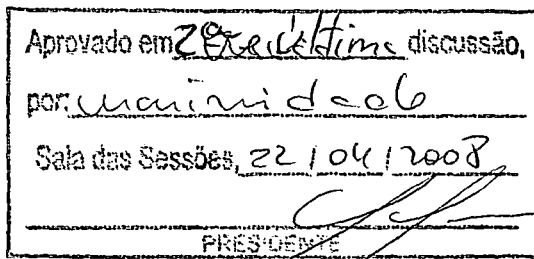 Aprovado em 2ª e última discussão,
por: unanimidade
Sala das Sessões, 22 / 04 / 2008
PRESIDENTE